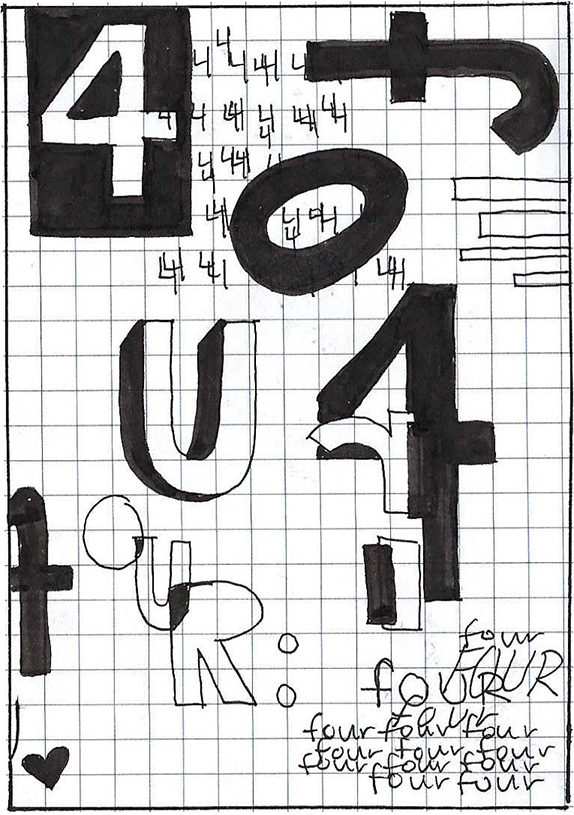 4
f
4 4 4 44 4
4 4 44 4 44 44
4 44
o
4 4 44
44 44 44
U
4
r
f
OUR:
four
FOUR
four
four
four four four
four four four
four four four
four four